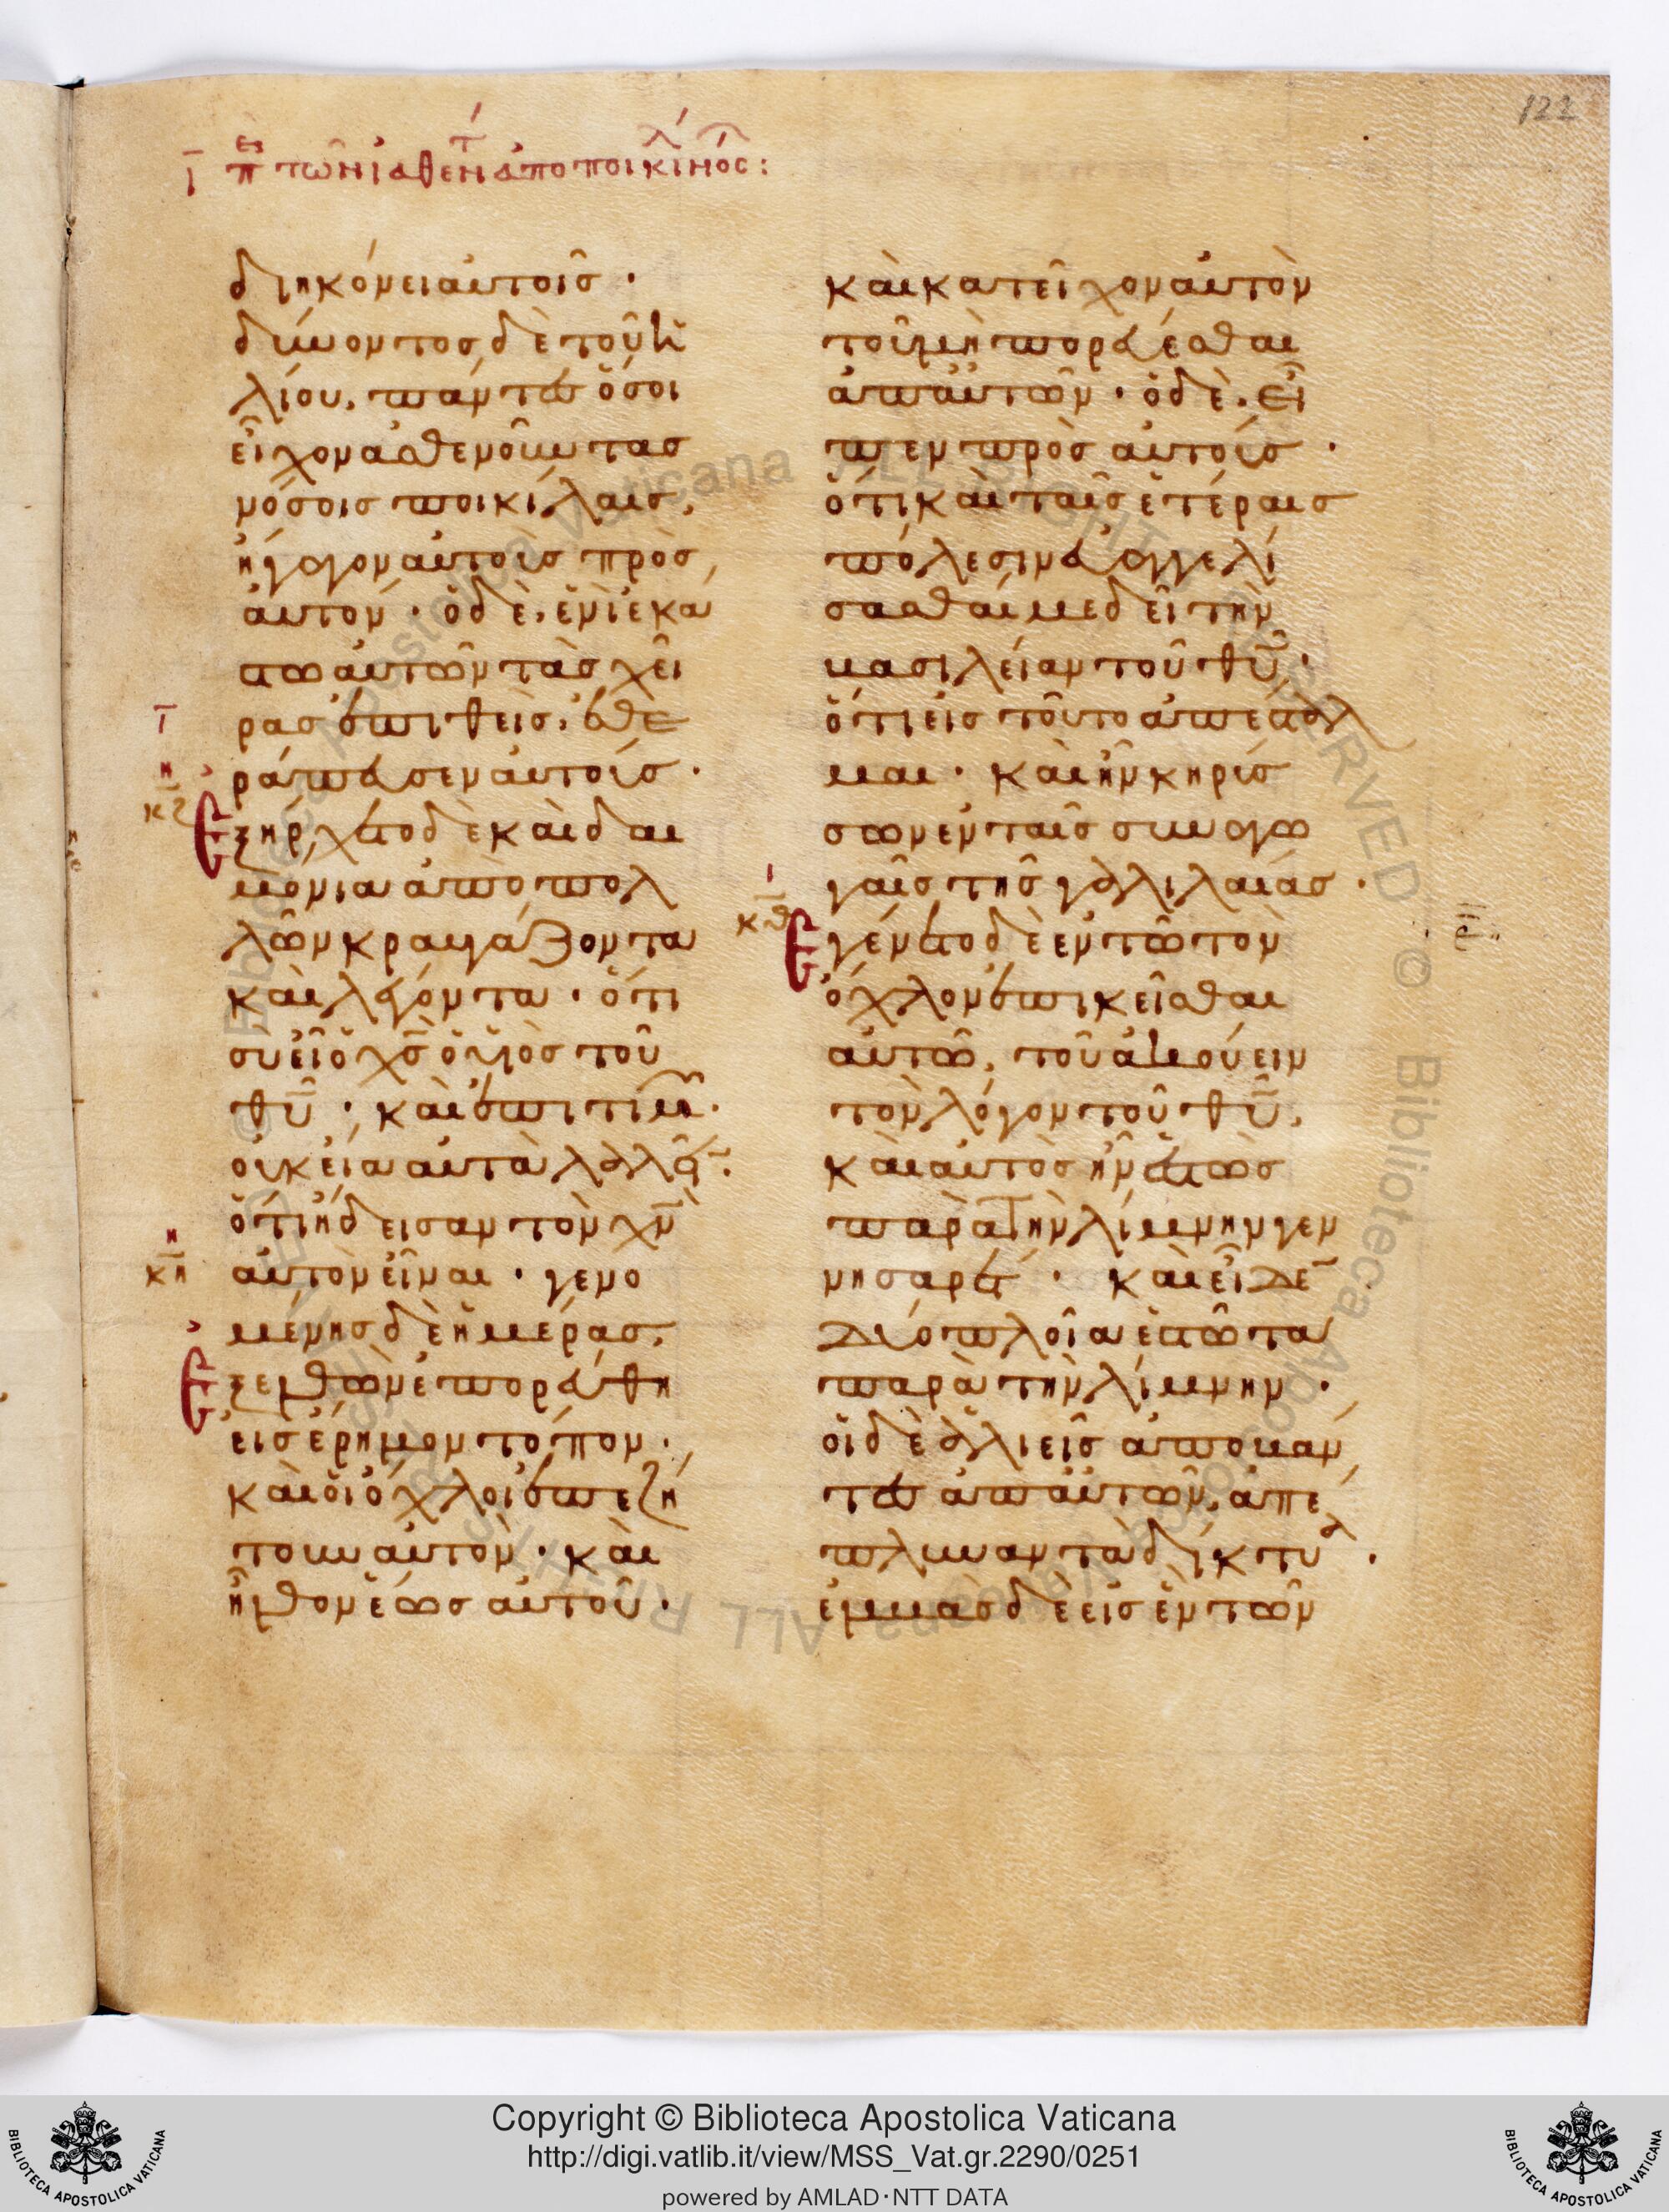 ι περ των ιαθεντ απο ποικιλ νοσ:
διηκόνει αυτοῖς ·
δύνοντος δὲ τοῦ ἡ
λίου, πάντες ὅσοι
εἶχον ἀσθενοῦντας
νόσοις ποικίλαις,
ἤγαγον αὐτοὺς πρὸς
αὐτόν · ὁ δὲ, ἑνὶ ἑκά
στω αὐτῶν τὰς χεῖ
ρας ἐπιθεὶς, ἐθε
ράπευσεν αὐτούς ·
κζ
Ἐξήρχετο δὲ καὶ δαι
μόνια ἀπὸ πολ
λῶν κραυγάζοντα
καὶ λέγοντα · ὅτι
σὺ εἶ ὁ χς ὁ υἱὸς τοῦ
θυ · καὶ ἐπιτιμῶν ·
οὐκ εἴα αὐτὰ λαλεῖν ·
ὅτι ἤδεισαν τὸν χν
κη
αὐτὸν εἶναι · γενο
μένης δὲ ἡμέρας,
Ἐξελθὼν ἐπορεύθη
εἰς ἔρημον τόπον ·
καὶ οἱ ὄχλοι ἐπεζή
τουν αὐτὸν · καὶ
ἦλθον ἕως αὐτοῦ ·
καὶ κατεῖχον αὐτὸν
τοῦ μὴ πορεύεσθαι
ἀπ αὐτῶν · ὁ δὲ, εἶ
πεν πρὸς αὐτούς ·
ὅτι καὶ ταῖς ἑτέραις
πόλεσιν εὐαγγελί
σασθαί με δεῖ τὴν
βασιλείαν τοῦ θυ ·
ὅτι εἰς τοῦτο ἀπέσταλ
μαι · καὶ ἦν κηρύσ
σων ἐν ταῖς συναγω
γαῖς τῆς γαλιλαίας ·
κθ
Ἐγένετο δὲ ἐν τῶ τὸν
ὄχλον ἐπικεῖσθαι
αὐτῶ, τοῦ ἀκούειν
τὸν λόγον τοῦ θυ,
καὶ αὐτὸς ἦν ἑστὼς
παρὰ τὴν λίμνην γεν
νησαρέτ · καὶ εἶδε
δύο πλοῖα ἑστῶτα
παρὰ τὴν λίμνην ·
οἱ δὲ ἁλιεῖς ἀποβάν
τες ἀπ αὐτῶν, ἀπέ
πλυναν τὰ δίκτυα ·
ἐμβὰς δὲ εἰς ἓν τῶν
Copyright © Biblioteca Apostolica Vaticana
http://digi.vatlib.it/view/MSS_Vat.gr.2290/0251
powered by AMLAD·NTT DATA